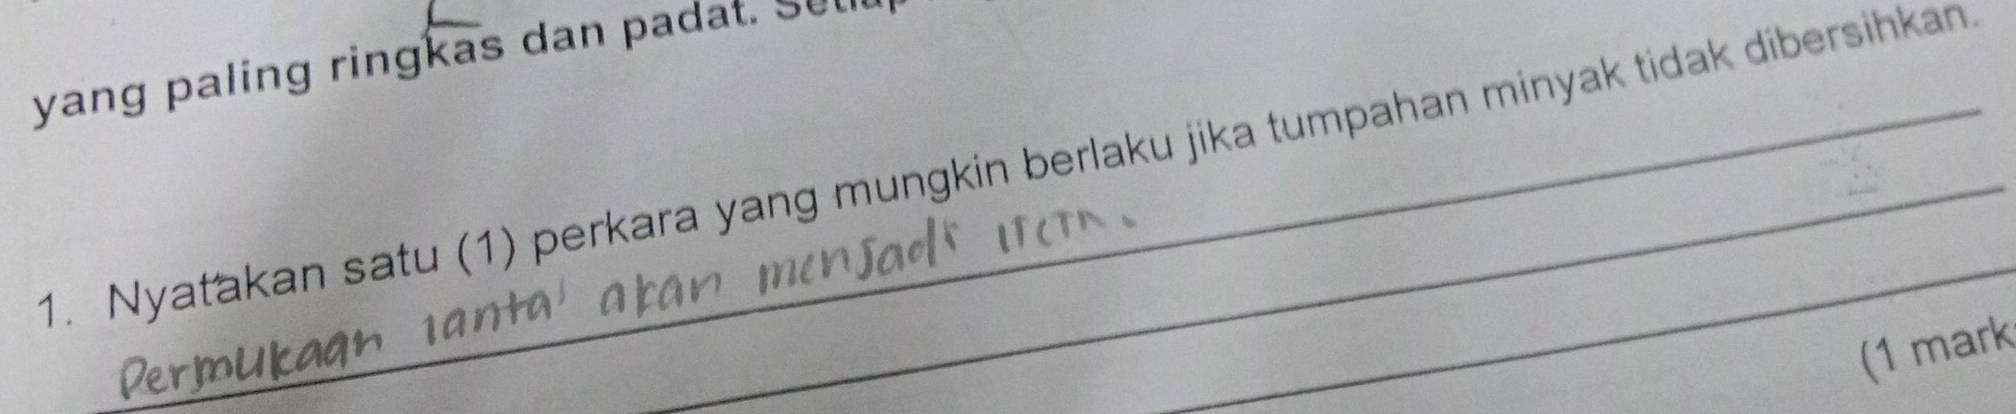 yang paling ringkas dan padat.
1. Nyatakan satu (1) perkara yang mungkin berlaku jika tumpahan minyak tidak dibersihkan.
Permukaan lantai akan menjadi licin.
(1 mark